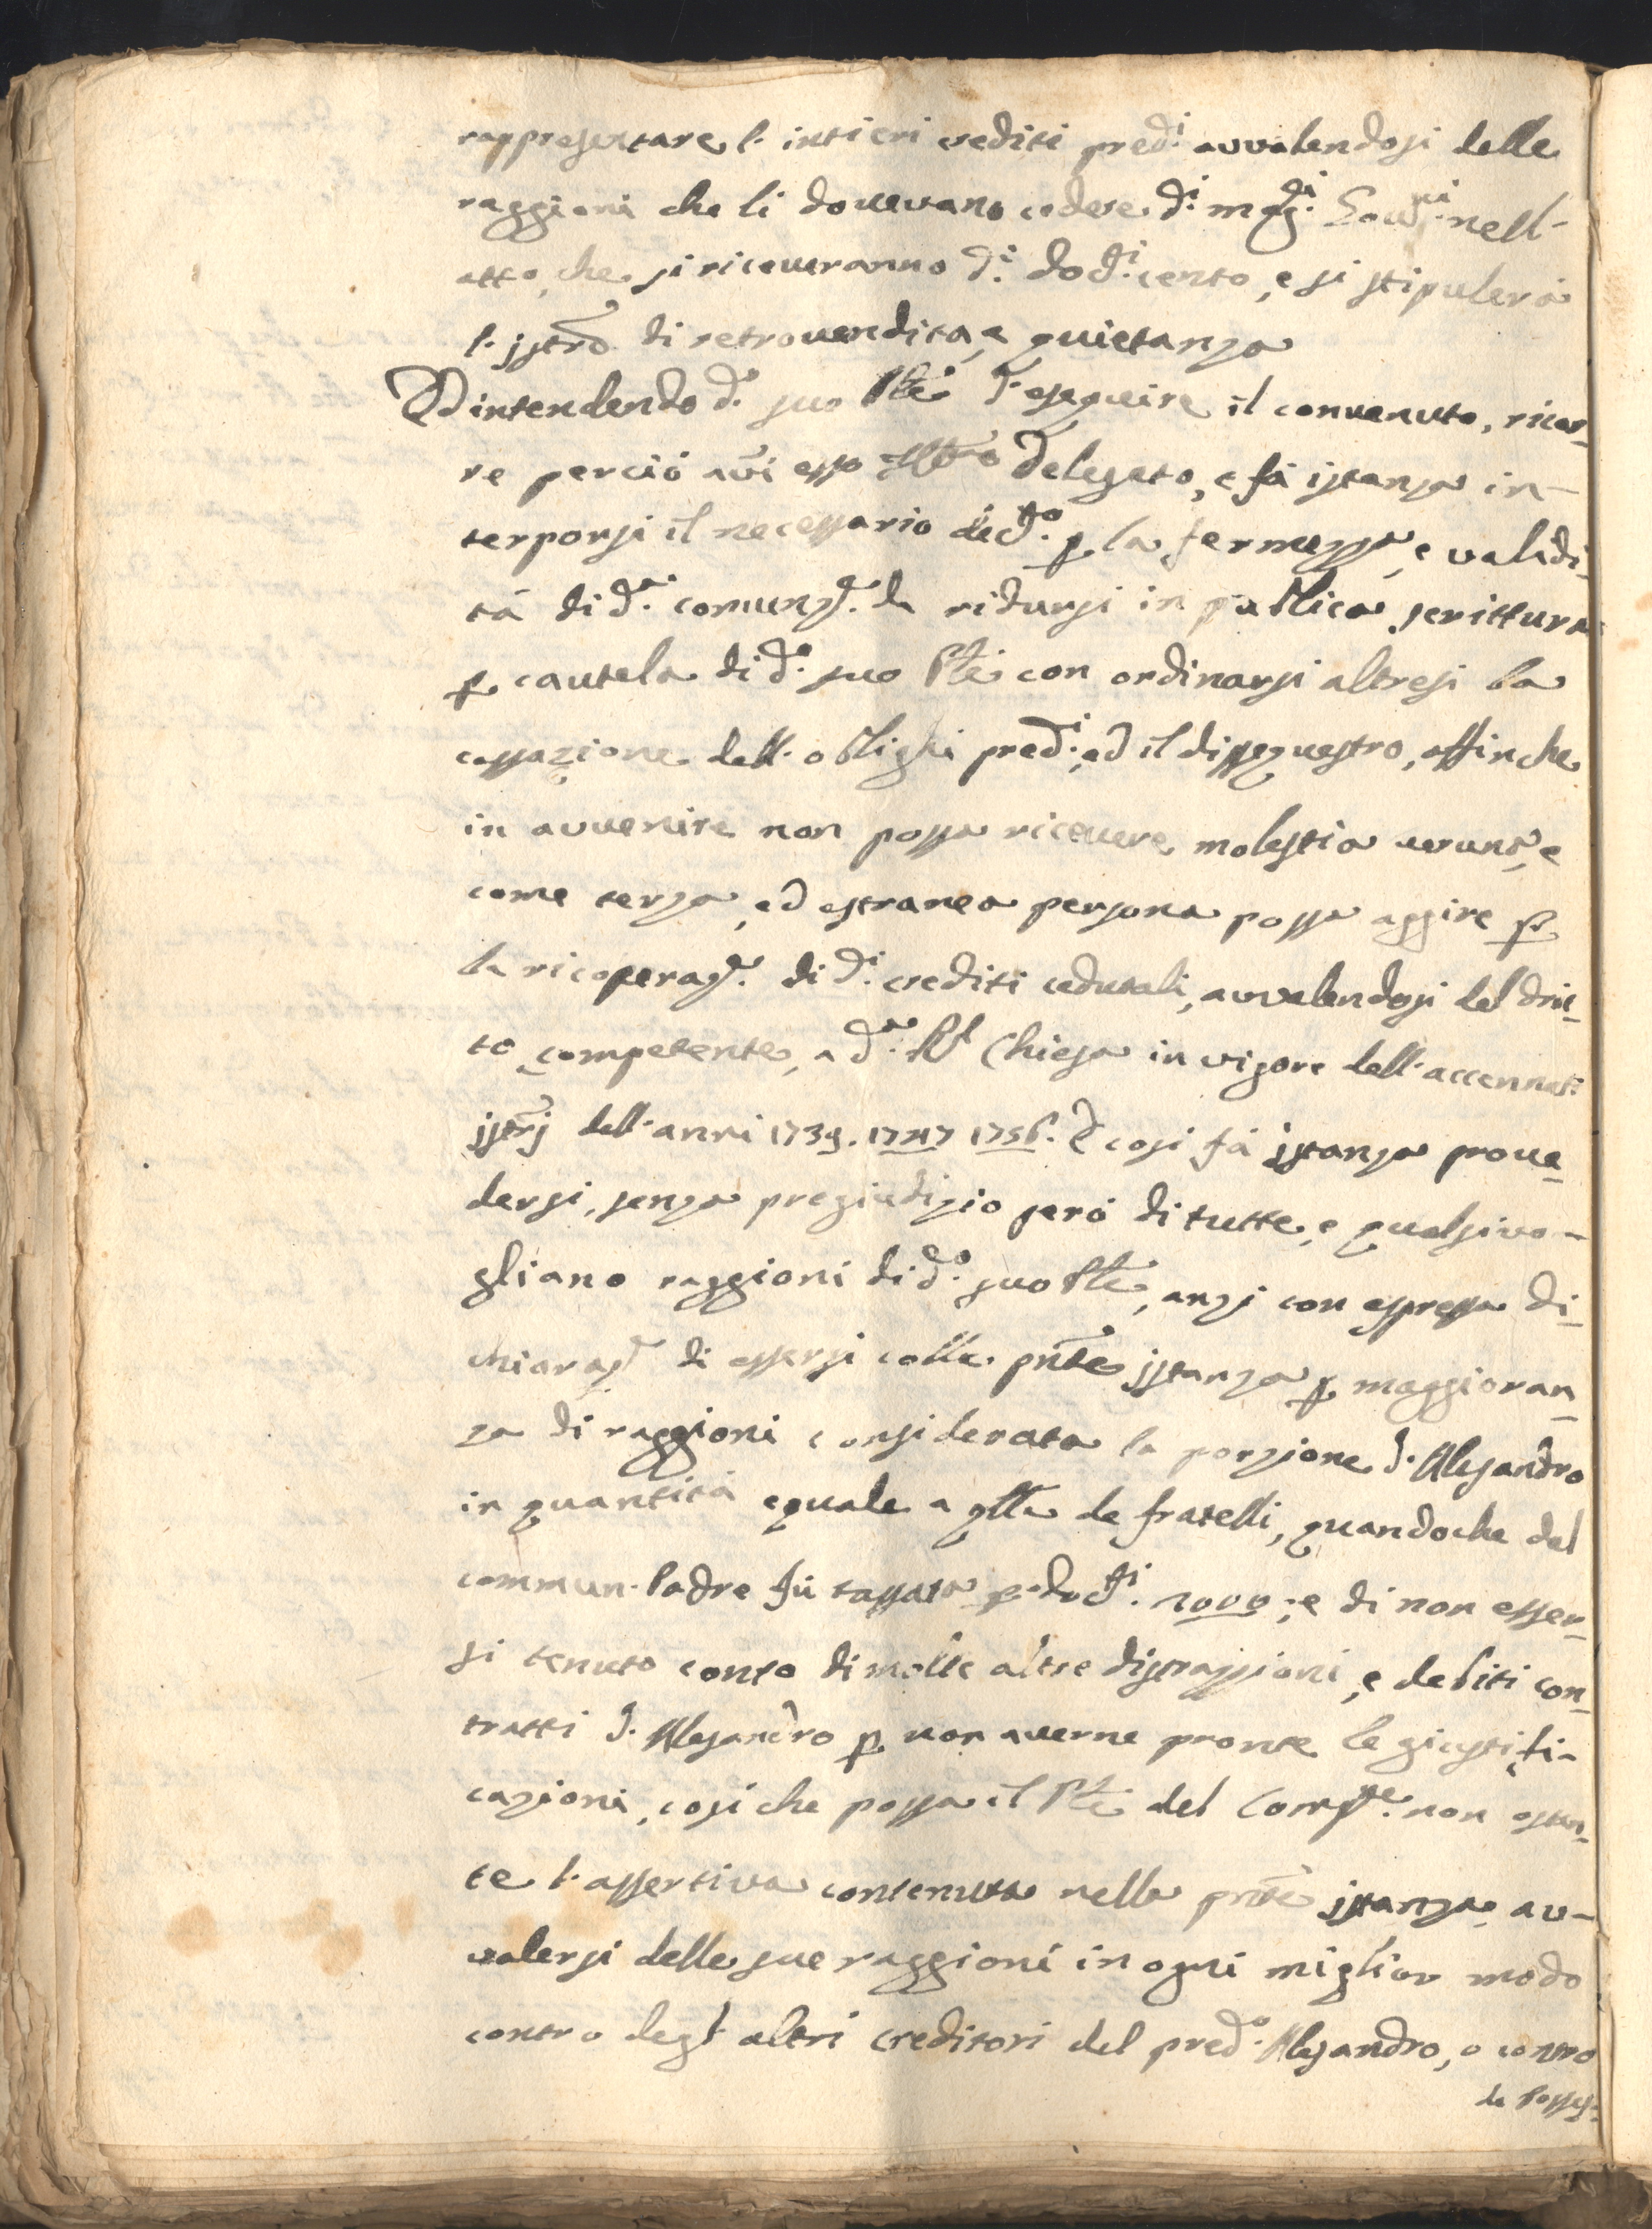 rappresentare l'intieri crediti pred.i avvalendosi delle
raggioni che li dovevano cedere d.i mag.i nell'
atto, che si riceveranno d.i doc.i cento, e si stipulerà
l'istro di retrovendita, e quietanza
Ed intendendo d.o suo Ple d'eseguire il convenuto, ricor-
re perciò avi esso Delegato, e fà istanza in-
terporsi il necessario dec.to p la fermezza, e validi-
tà di d.a convenz.e da ridursi in publica scrittura
p cautela di d.o suo Ple con ordinarsi altresi la
cassazione dell'oblighi pred.i, ed il dissequestro, affinche
in avvenire non possa ricevere molestia veruna, e
come terza, ed estranea persona possa aggire p
la ricoperaz.e di d.i crediti cedutili, avvalendosi del drit-
to competente, a d.a Rl Chiesa in vigore dell'accennati
istrj dell'anni 1739. 1747 1756. E cosi fà istanza prove-
dersi, senza pregiudizio però di tutte, e qualsivo-
gliano raggioni di d.o suo Ple, anzi con espressa di-
chiaraz.e di essersi colla pnte istanza p maggioran-
za di raggioni considerata la porzione d'Alesandro
in quantità eguale a qlla de fratelli, quandoche dal
commun Padre fù tassata p doc.i 2000; e di non esser-
si tenuto conto di molte altre distrazzioni, e debiti con-
tratti d'Alesandro p non averne pronte le giustifi-
cazioni, cosi che possa il Ple del Comp.te non ostan-
te l'assertiva contenuta nella pnte istanza av-
valersi delle sue raggioni in ogni miglior modo
contro degl'altri creditori del pred.o Alesandro, o contro
de Posses-